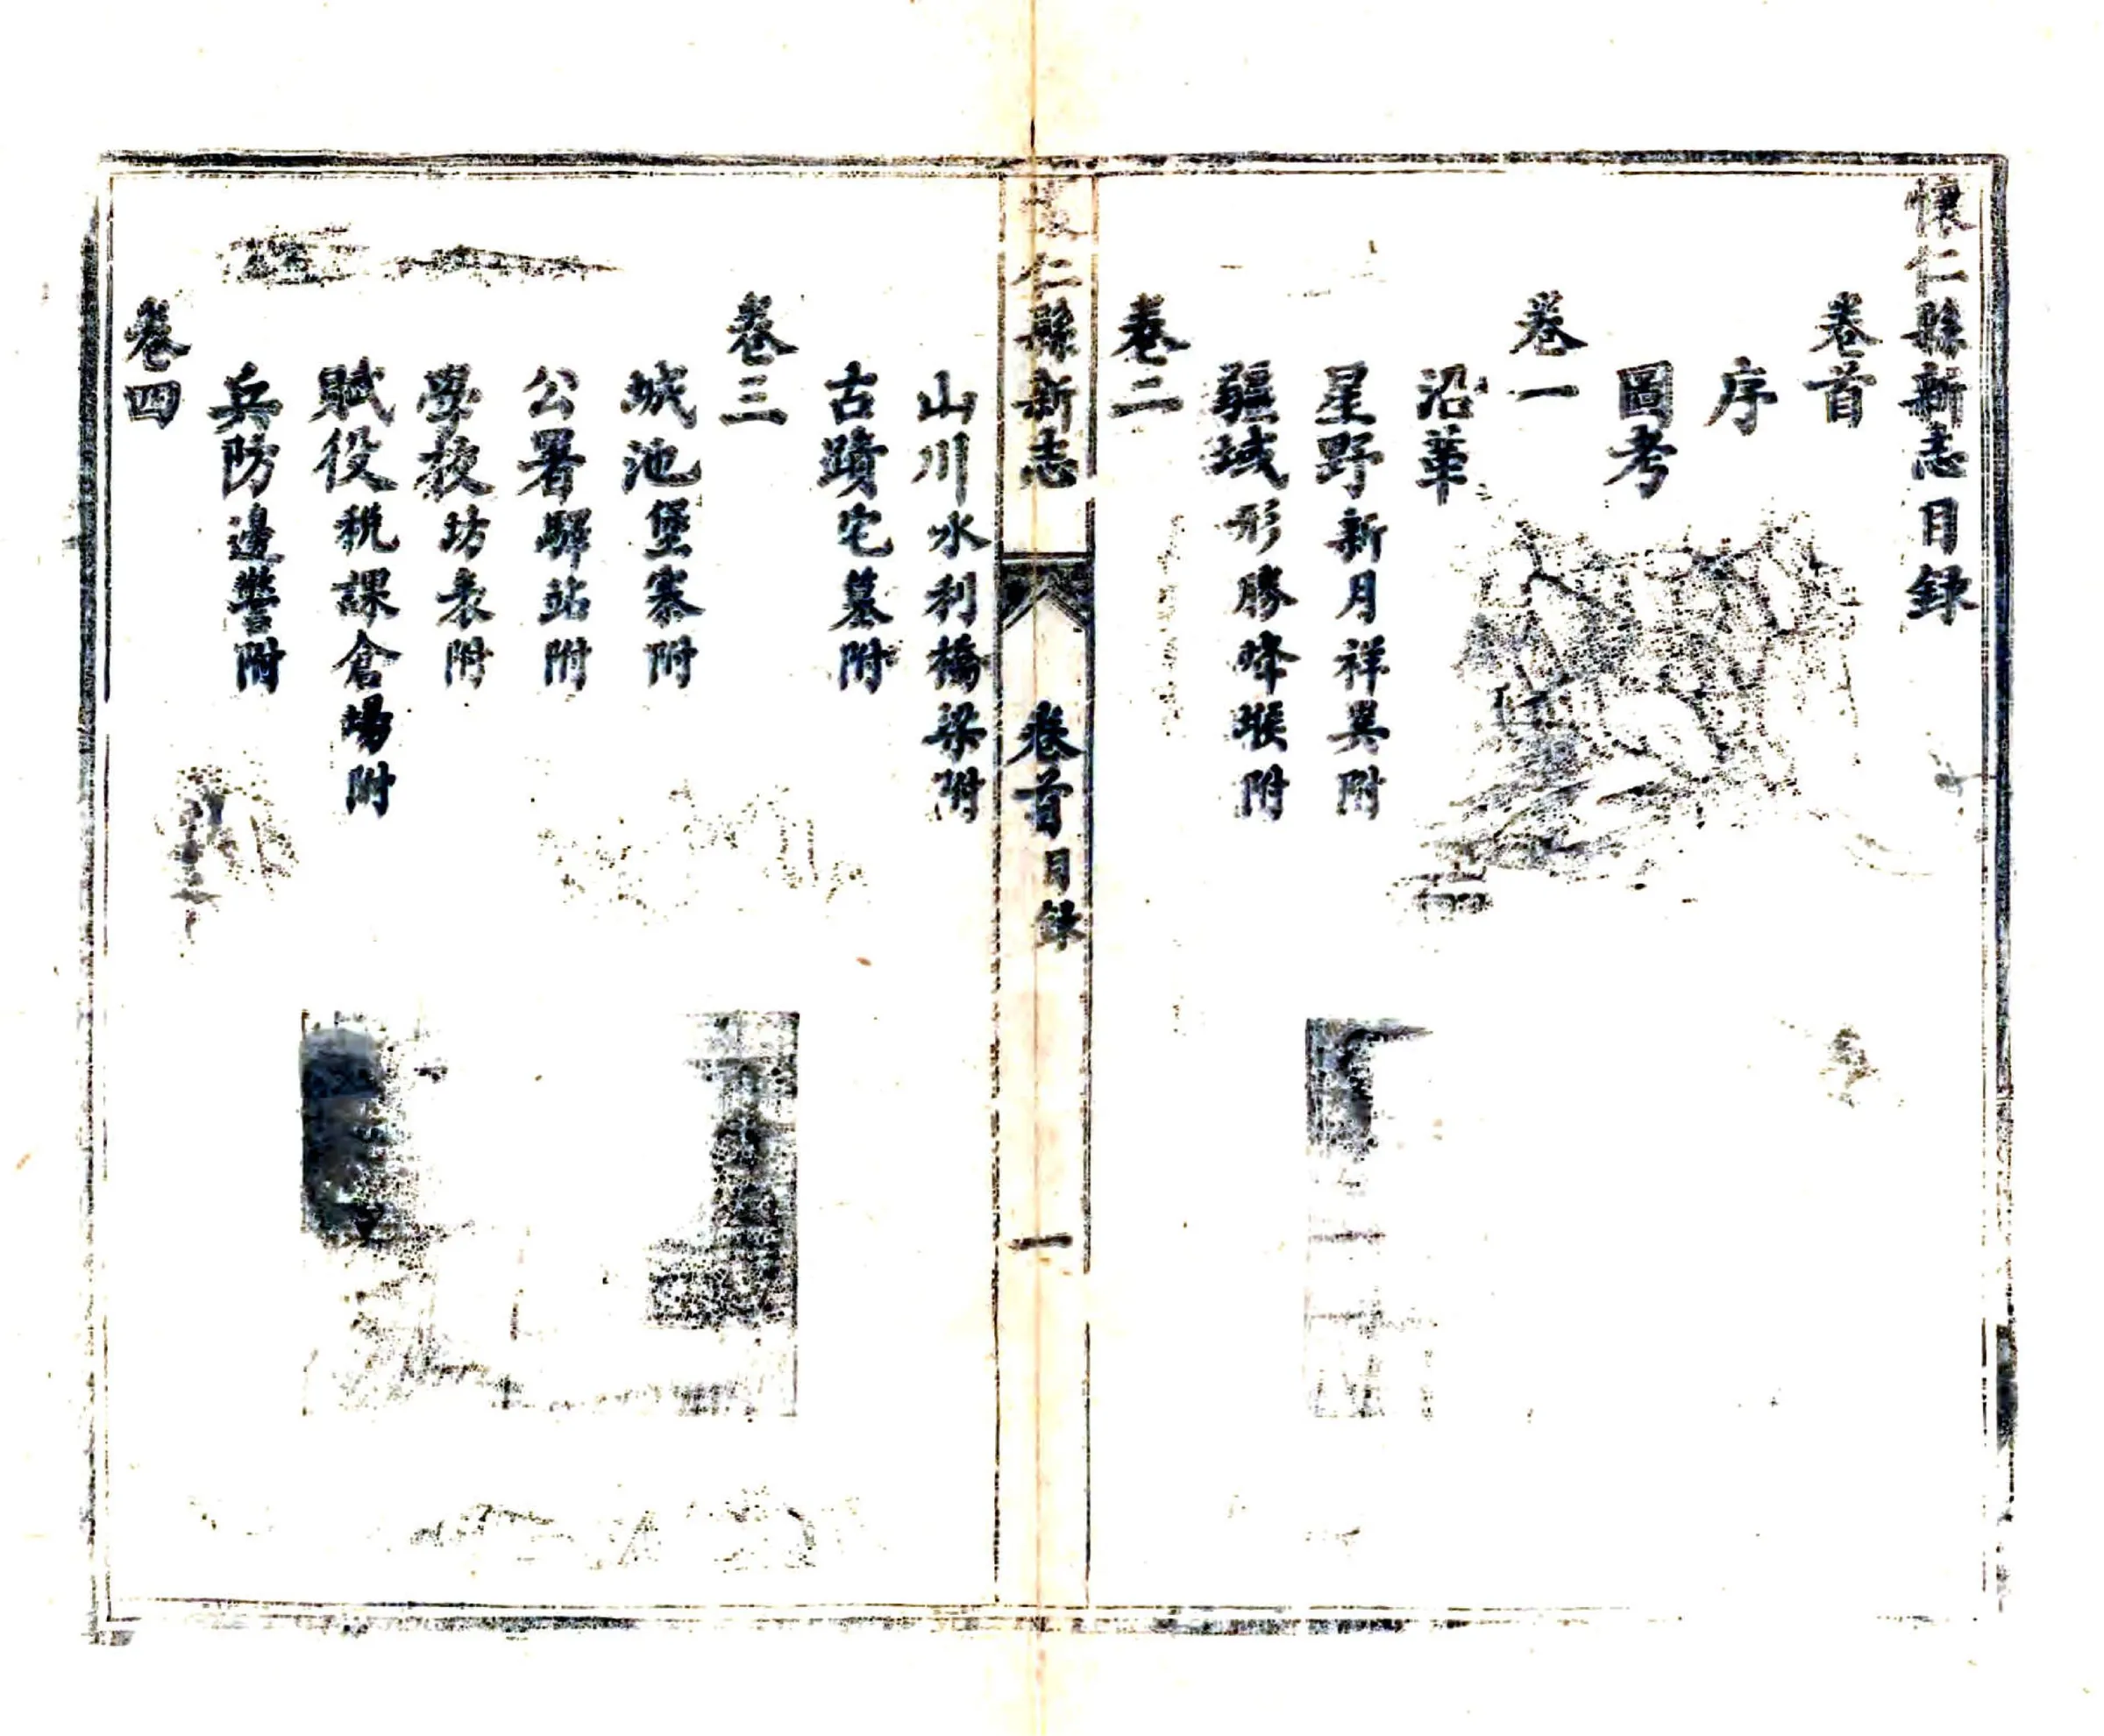 懷仁縣新志目録
卷首
序
圖考
卷一
沿革
星野新月祥異附
疆域形勝烽堠附
卷二
仁縣新志
卷首目録
一
山川水利橋梁附
古蹟宅墓附
卷三
城池堡寨附
公署驛站附
學校坊表附
賦役稅課倉場附
兵防邊警附
卷四